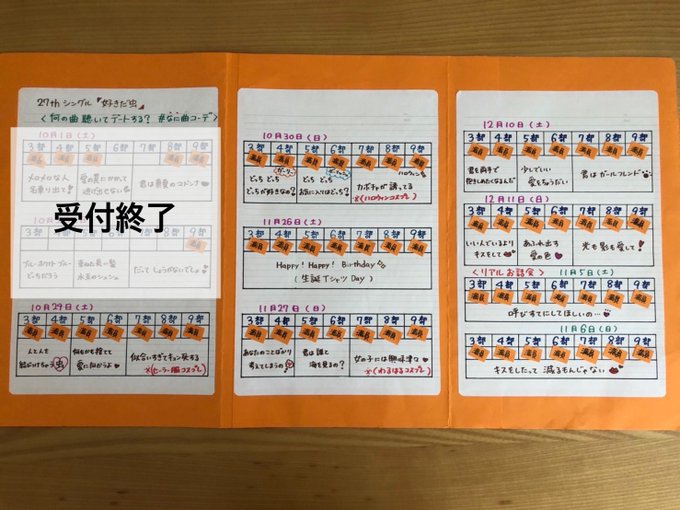 27thシングル『好きだ虫』
<何の曲聴いてデートする？ #なに曲コーデ>
10月1日(土)
3部 4部 5部 6部 7部 8部 9部
満員 満員 満員 満員 満員 満員 満員
メロメロな人
名乗り出て！
愛の罠にかかって
逃げ出せない
君は真夏のコドンナ
受付終了
10月
3部 4部 5部 6部 7部 8部 9部
満員
ブルーホワイトブルー
どっちだろう
束ねた長い髪
水玉のシュシュ
だってしょうがないでしょ
10月29日(土)
3部 4部 5部 6部 7部 8部 9部
満員 満員 満員 満員 満員 満員 満員
人とんち
結んだけちゃう虫
何もかも捨てて
愛に向かうよ
似合いすぎてキュン死する
※(ヒーラー服コスプレ)
10月30日(日)
3部 4部 5部 6部 7部 8部 9部
満員 満員 満員 満員 満員 満員 満員
どっち どっち
どっちが好きなの？
どっち どっち
お気に入りはどっち？
ハロウィン
カボチャが誘ってる
※(ハロウィンコスプレ)
11月26日(土)
3部 4部 5部 6部 7部 8部 9部
満員 満員 満員 満員 満員 満員 満員
Happy! Happy! Birthday
(生誕Tシャツ Day)
11月27日(日)
3部 4部 5部 6部 7部 8部 9部
満員 満員 満員 満員 満員 満員 満員
あなたのことばかり
考えてしまうの
君は誰と
海を見るの？
女の子には興味津々
※(わるはるコスプレ)
12月10日(土)
3部 4部 5部 6部 7部 8部 9部
満員 満員 満員 満員 満員 満員 満員
君を両手で
抱きしめたくなるんだ
少しでいい
愛をちょうだい
君はガールフレンド
12月11日(日)
3部 4部 5部 6部 7部 8部 9部
満員 満員 満員 満員 満員 満員 満員
いい人でいるより
キスをして
あふれ出す
愛の色
光も影も愛して！
<リアルお話会> 11月5日(土)
3部 4部 5部 6部 7部 8部 9部
満員 満員 満員 満員 満員 満員 満員
呼びすてにしてほしいの…
11月6日(日)
3部 4部 5部 6部 7部 8部 9部
満員 満員 満員 満員 満員 満員 満員
キスをしたって 減るもんじゃない